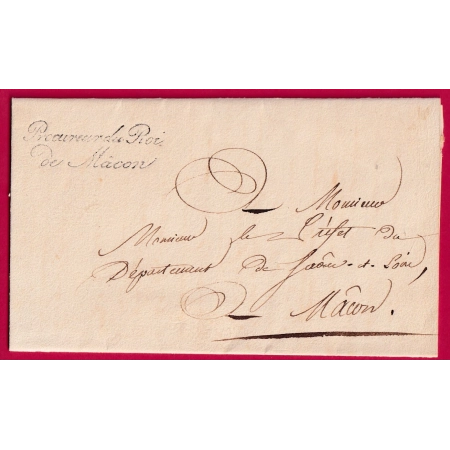 Procureur du Roi
de Mâcon
A Monsieur
Monsieur le Préfet du
Département de Saône-et-Loire,
A Mâcon.